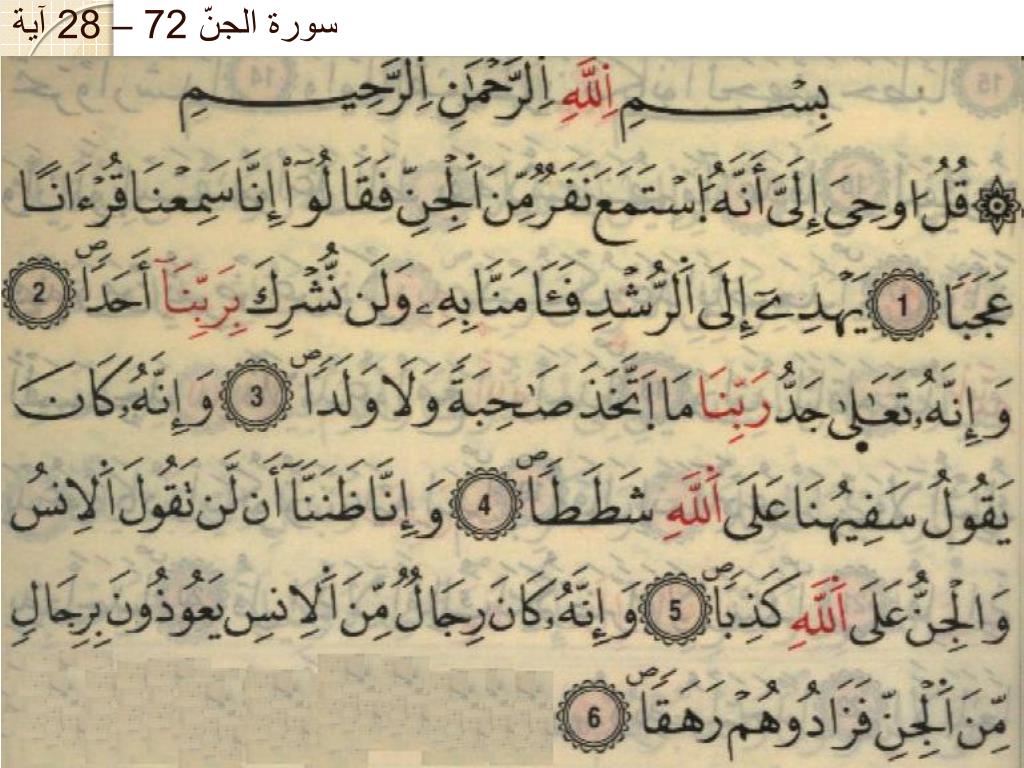 سورة الجنّ 72 – 28 آية
بِسْمِ اِللَّهِ اِلرَّحْمَٰنِ اِلرَّحِيمِ
۞ قُلُ اوحِىَ إِلَىَّ أَنَّهُ اُسْتَمَعَ نَفَرٌ مِّنَ اَلْجِنِّ فَقَالُوٓاْ إِنَّا سَمِعْنَا قُرْءَاناً
عَجَباً 1 يَهْدِےٓ إِلَى اَلرُّشْدِ فَـَٔامَنَّا بِهِۦ وَلَن نُّشْرِكَ بِرَبِّنَآ أَحَداًۖ 2
وَإِنَّهُۥ تَعَٰلىٰ جَدُّ رَبِّنَا مَا اَتَّخَذَ صَٰحِبَةً وَلَا وَلَداًۖ 3 وَإِنَّهُۥ كَانَ
يَقُولُ سَفِيهُنَا عَلَى اَللَّهِ شَطَطاًۖ 4 وَإِنَّا ظَنَنَّآ أَن لَّن تَقُولَ اَلْاِنسُ
وَالْجِنُّ عَلَى اَللَّهِ كَذِباًۖ 5 وَإِنَّهُۥ كَانَ رِجَالٌ مِّنَ اَلْاِنسِ يَعُوذُونَ بِرِجَالٍ
مِّنَ اَلْجِنِّ فَزَادُوهُمْ رَهَقاًۖ 6